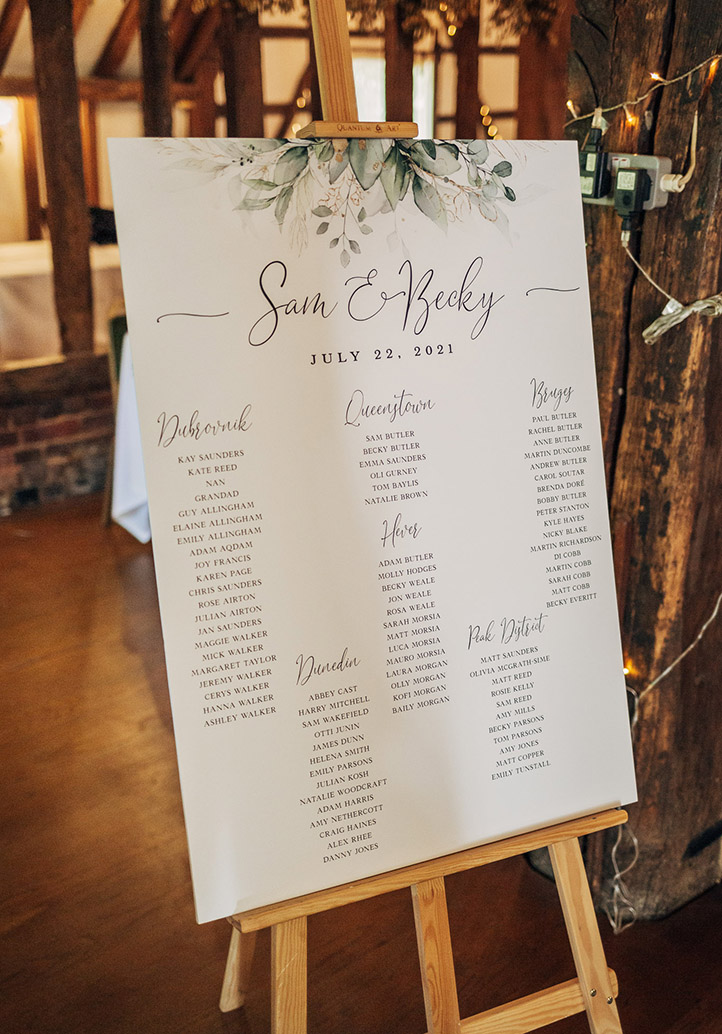 QUANTUM ART
Sam & Becky
JULY 22, 2021
Dubrovnik
KAY SAUNDERS
KATE REED
NAN
GRANDAD
GUY ALLINGHAM
ELAINE ALLINGHAM
EMILY ALLINGHAM
ADAM AQDAM
JOY FRANCIS
KAREN PAGE
CHRIS SAUNDERS
ROSE AIRTON
JULIAN AIRTON
JAN SAUNDERS
MAGGIE WALKER
MICK WALKER
MARGARET TAYLOR
JEREMY WALKER
CERYS WALKER
HANNA WALKER
ASHLEY WALKER
Dunedin
ABBEY CAST
HARRY MITCHELL
SAM WAKEFIELD
OTTI JUNIN
JAMES DUNN
HELENA SMITH
EMILY PARSONS
JULIAN KOSH
NATALIE WOODCRAFT
ADAM HARRIS
AMY NETHERCOTT
CRAIG HAINES
ALEX RHEE
DANNY JONES
Queenstown
SAM BUTLER
BECKY BUTLER
EMMA SAUNDERS
OLI GURNEY
TOM BAYLIS
NATALIE BROWN
Hever
ADAM BUTLER
MOLLY HODGES
BECKY WEALE
JON WEALE
ROSA WEALE
SARAH MORSIA
MATT MORSIA
LUCA MORSIA
MAURO MORSIA
LAURA MORGAN
OLLY MORGAN
KOFI MORGAN
BAILY MORGAN
Bruges
PAUL BUTLER
RACHEL BUTLER
ANNE BUTLER
MARTIN DUNCOMBE
ANDREW BUTLER
CAROL SOUTAR
BRENDA DORÉ
BOBBY BUTLER
PETER STANTON
KYLE HAYES
NICKY BLAKE
MARTIN RICHARDSON
DI COBB
MARTIN COBB
SARAH COBB
MATT COBB
BECKY EVERITT
Peak District
MATT SAUNDERS
OLIVIA MCGRATH-SIME
MATT REED
ROSIE KELLY
SAM REED
AMY MILLS
BECKY PARSONS
TOM PARSONS
AMY JONES
MATT COPPER
EMILY TUNSTALL